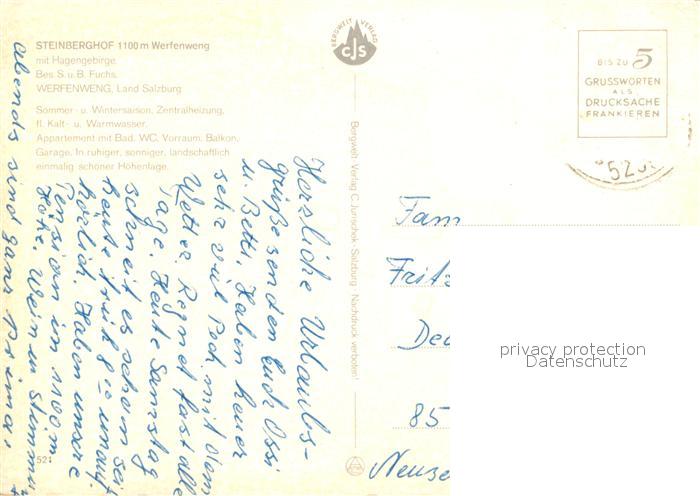 STEINBERGHOF 1100 m Werfenweng
mit Hagengebirge.
Bes. S. u. B. Fuchs,
WERFENWENG, Land Salzburg
Sommer- u. Wintersaison. Zentralheizung,
fl. Kalt- u. Warmwasser.
Appartement mit Bad, WC, Vorraum, Balkon,
Garage. In ruhiger, sonniger, landschaftlich
einmalig schöner Höhenlage.
BERGWELT VERLAG
CJS
Bergwelt Verlag C. Jurischek, Salzburg - Nachdruck verboten!
BIS ZU 5
GRUSSWORTEN
ALS
DRUCKSACHE
FRANKIEREN
Herzliche Urlaubs-
grüße senden Euch Ossi
u. Betti. Haben heuer
sehr viel Pech mit dem
Wetter. Regnet fast alle
Tage. Heute Samstag
schneit es schon seit
heute früh
herrlich. Haben unsere
Pension im 1100 m
Höhe. Wein u. Stimmung
abends sind ganz prima.
521
Fam
Fritz
85
privacy protection
Datenschutz